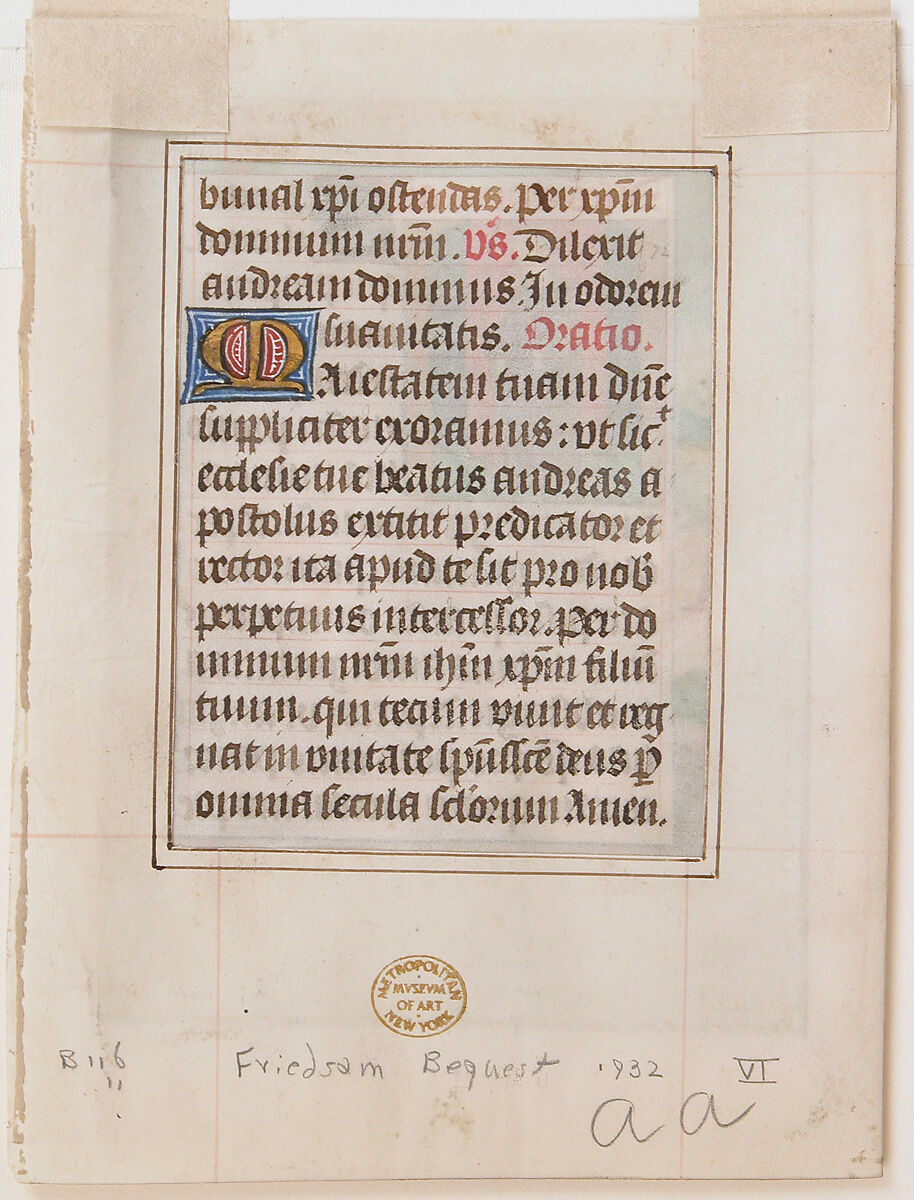 bunal xp̄i ostendas. Per xp̄m
dominum nr̄m. Vs. Dilexit
andream dominus. In odorem
suauitatis. Oratio.
MAiestatem tuam dn̄e
suppliciter exoramus: vt sic
ecclesie tue beatus andreas a
postolus extitit predicator et
rector ita apud te sit pro nob
perpetuus intercessor. Per do
minum nr̄m ihm̄ xp̄m filiū
tuum. qui tecum viuit et reg
nat in vnitate spūs scē deus p̄
omnia secula sclorum Amen.
METROPOLITAN
MVSEVM
OF ART
NEW YORK
B 116
11
Friedsam Bequest 1932 VI
a a